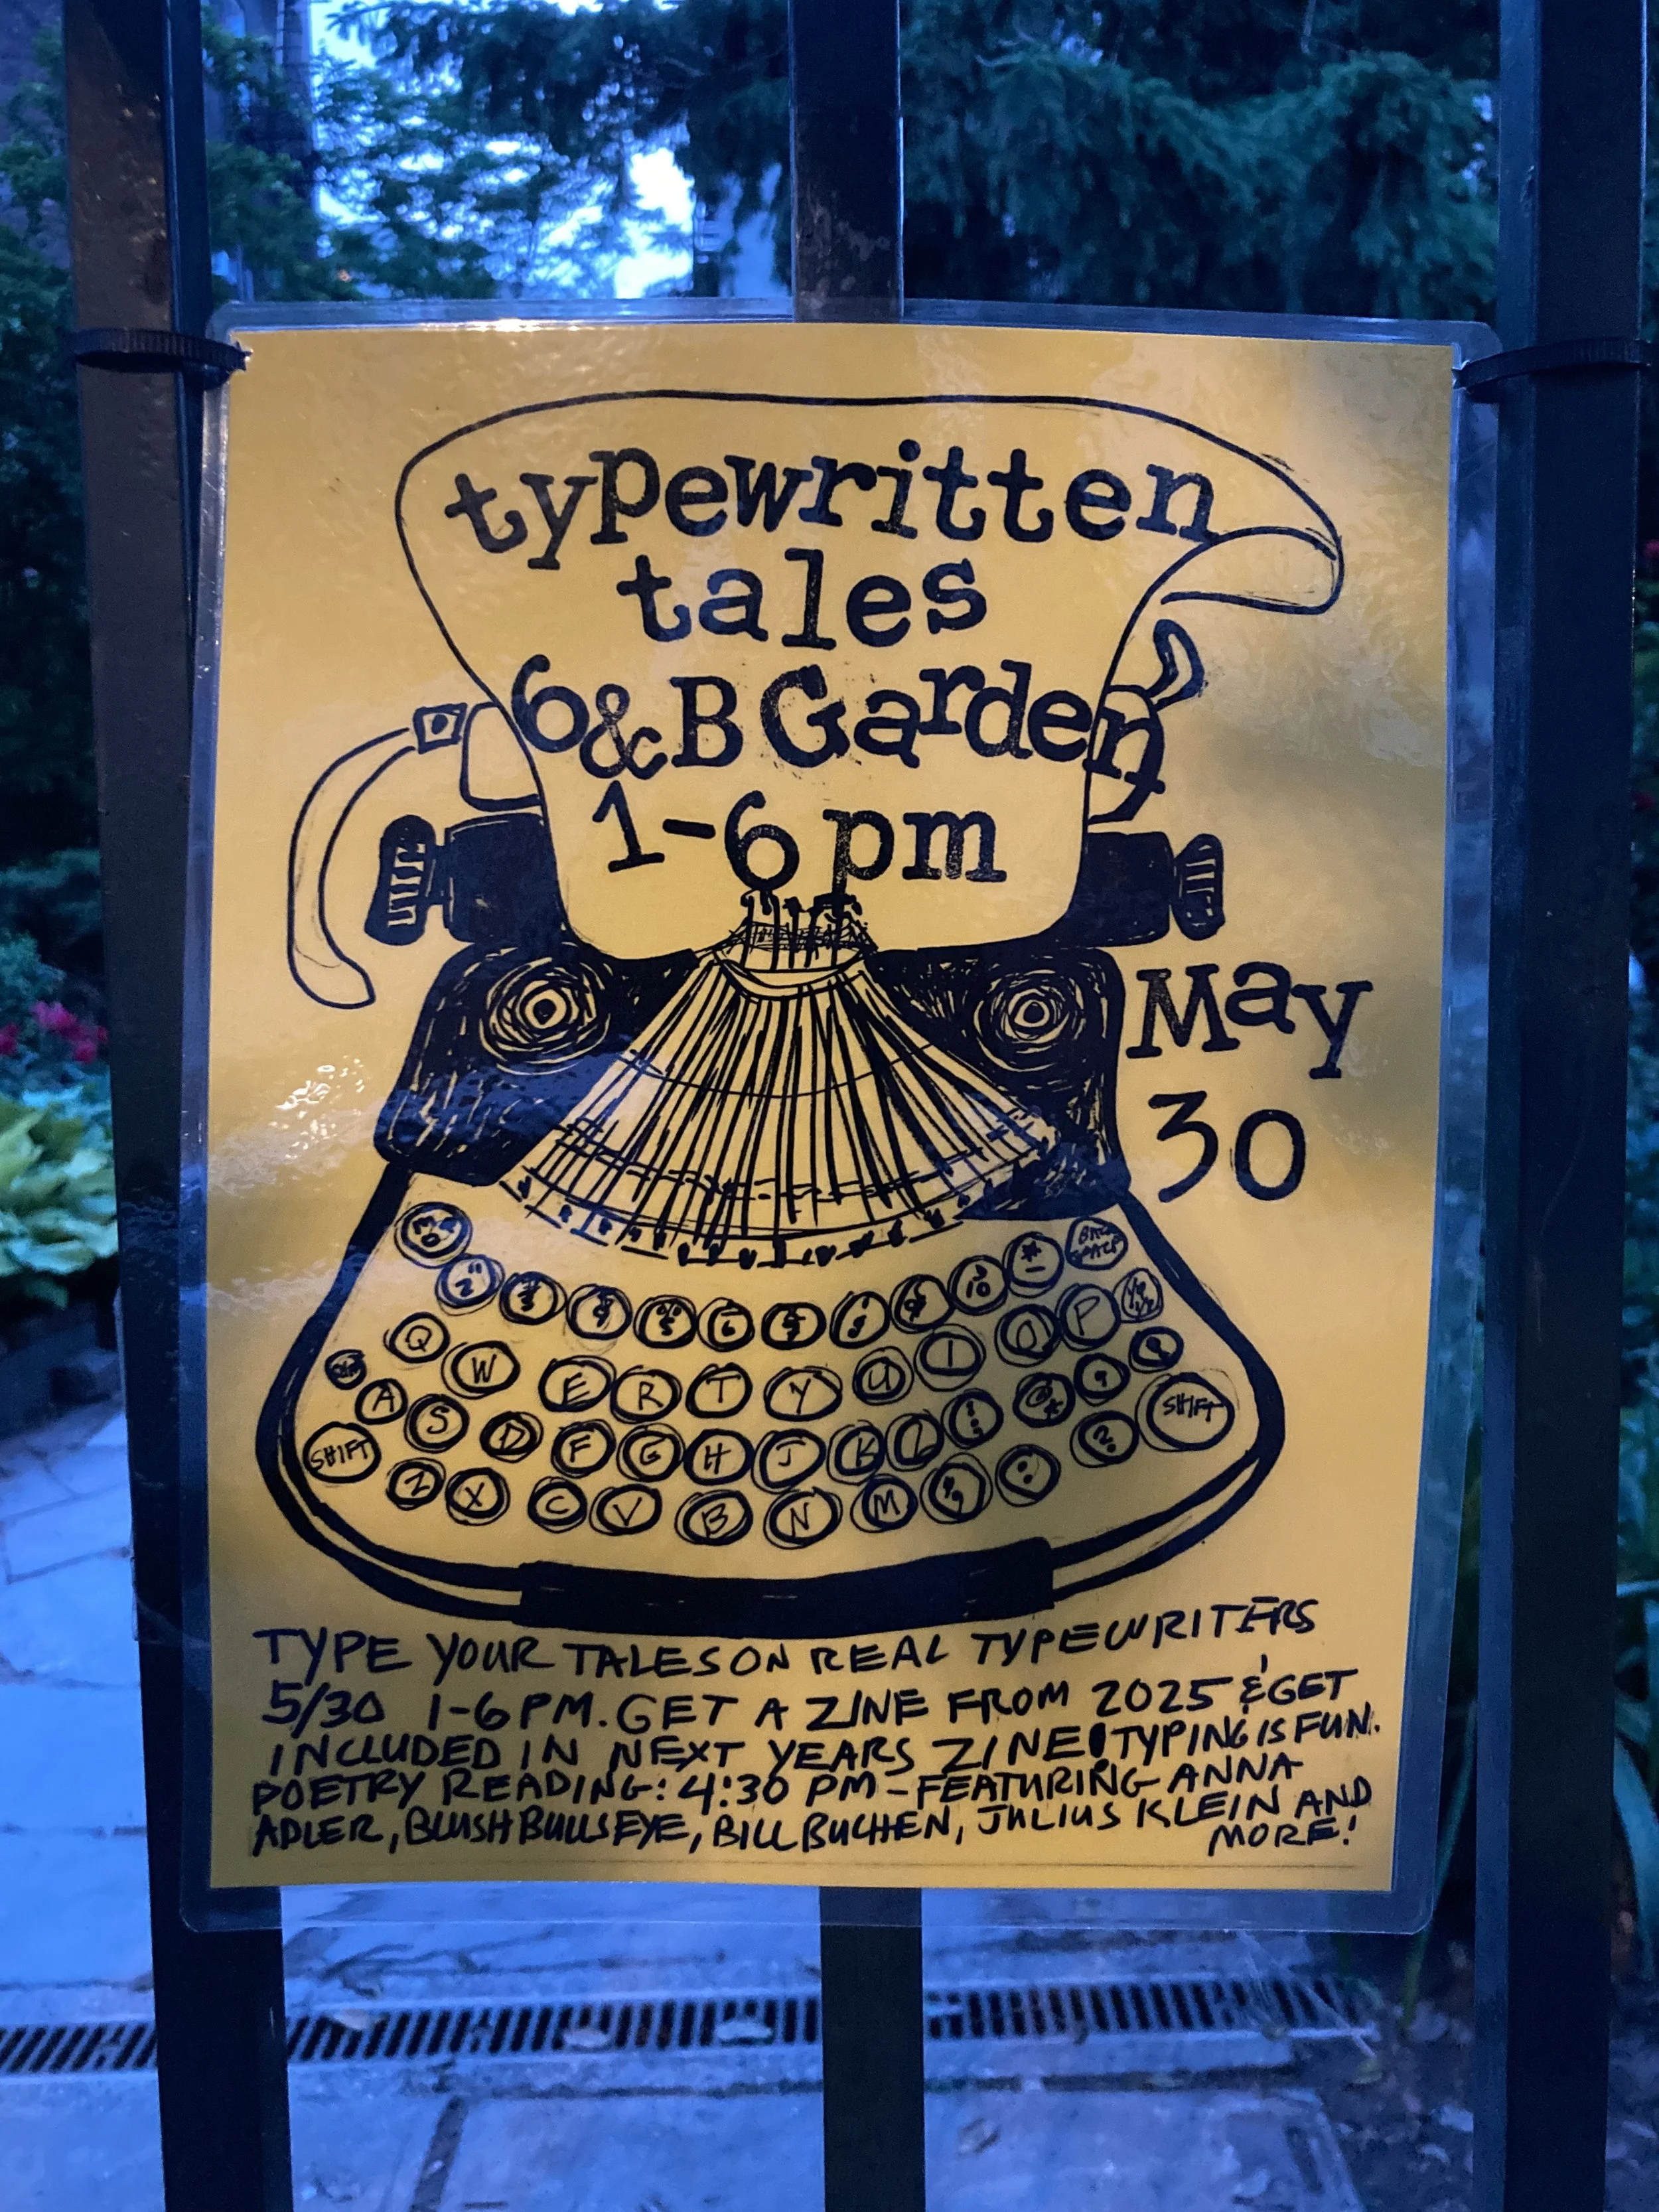 typewritten
tales
6&B Garden
1-6 pm
May
30
BACK SPACE
Q W E R T Y U I O P
A S D F G H J K L
SHIFT Z X C V B N M SHIFT
TYPE YOUR TALES ON REAL TYPEWRITERS
5/30 1-6 PM. GET A ZINE FROM 2025 & GET
INCLUDED IN NEXT YEARS ZINE! TYPING IS FUN.
POETRY READING: 4:30 PM - FEATURING ANNA
ADLER, BLUSH BULLSEYE, BILL BUCHEN, JULIUS KLEIN AND
MORE!